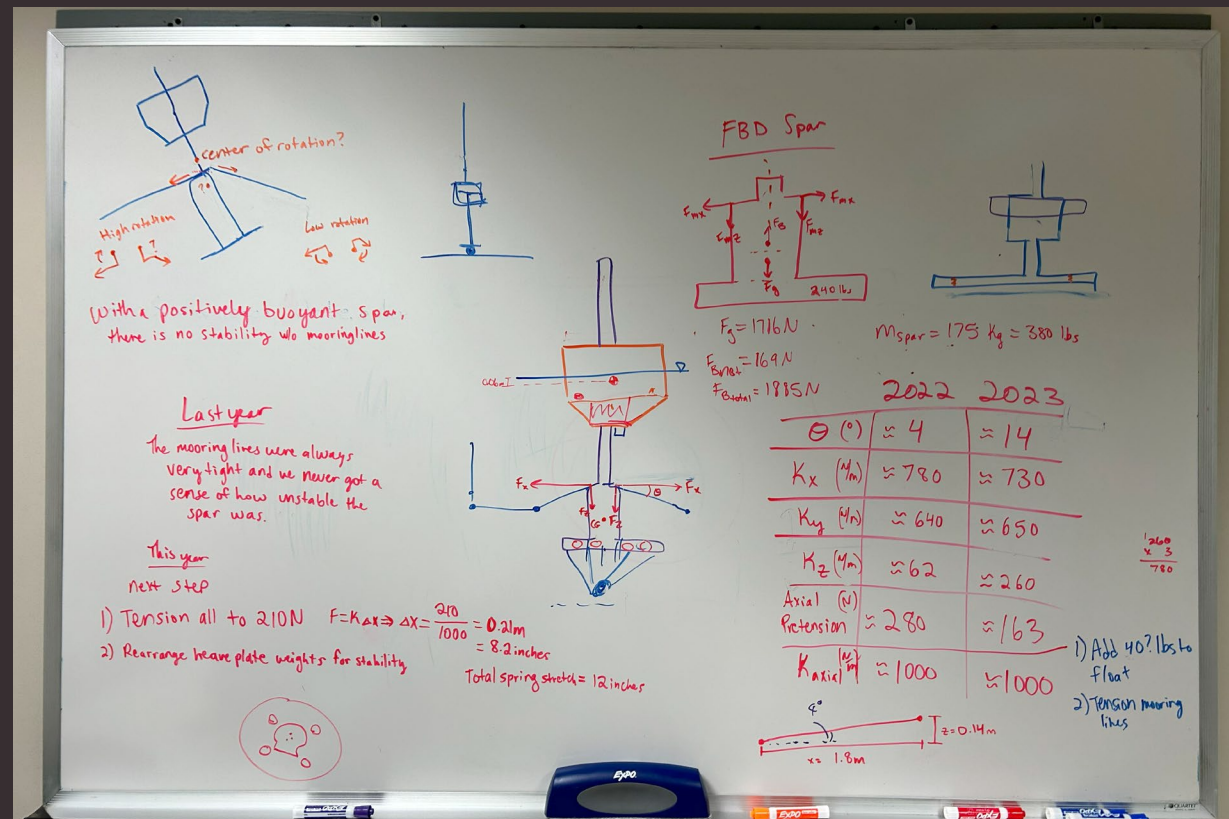 center of rotation?
High rotation
?
Low rotation
With a positively buoyant spar,
there is no stability w/o mooringlines
Last year
The mooring lines were always
very tight and we never got a
sense of how unstable the
spar was.
This year
next step
1) Tension all to 210N F=KΔx⇒ Δx= 210/1000 = 0.21m
= 8.2 inches
2) Rearrange heave plate weights for stability
Total spring stretch = 12 inches
Fx
Fx
θ
Fz
Fz
FBD Spar
Fmx
Fmx
Fmz
Fmz
FB
Fg
240 lbs
Fg = 1716N
FBnet = 169N
FBtotal = 1885N
mspar = 175 Kg = 380 lbs
2022 2023
θ (°) ≈ 4 ≈ 14
Kx (N/m) ≈ 780 ≈ 730
Ky (N/m) ≈ 640 ≈ 650
Kz (N/m) ≈ 62 ≈ 260
Axial (N)
Pretension ≈ 280 ≈ 163
Kaxial (N/m) ≈ 1000 ≈ 1000
260
x 3
780
1) Add 40? lbs to
float
2) Tension mooring
lines
4°
z=0.14m
x= 1.8m
EXPO
EXPO
QUARTET